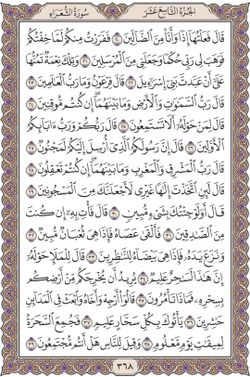 الجزء التاسع عشر سورة الشعراء
قال فعلتها إذا وأنا من الضالين ۝٢٠ ففررت منكم لما خفتكم
فوهب لي ربي حكما وجعلني من المرسلين ۝٢١ وتلك نعمة تمنها
علي أن عبدت بني إسرائيل ۝٢٢ قال فرعون وما رب العالمين ۝٢٣
قال رب السماوات والأرض وما بينهما إن كنتم موقنين ۝٢٤
قال لمن حوله ألا تستمعون ۝٢٥ قال ربكم ورب آبائكم
الأولين ۝٢٦ قال إن رسولكم الذي أرسل إليكم لمجنون ۝٢٧
قال رب المشرق والمغرب وما بينهما إن كنتم تعقلون ۝٢٨
قال لئن اتخذت إلها غيري لأجعلنك من المسجونين ۝٢٩
قال أولو جئتك بشيء مبين ۝٣٠ قال فأت به إن كنت
من الصادقين ۝٣١ فألقى عصاه فإذا هي ثعبان مبين ۝٣٢
ونزع يده فإذا هي بيضاء للناظرين ۝٣٣ قال للملإ حوله
إن هذا لساحر عليم ۝٣٤ يريد أن يخرجكم من أرضكم
بسحره فماذا تأمرون ۝٣٥ قالوا أرجه وأخاه وابعث في المدائن
حاشرين ۝٣٦ يأتوك بكل سحار عليم ۝٣٧ فجمع السحرة
لميقات يوم معلوم ۝٣٨ وقيل للناس هل أنتم مجتمعون ۝٣٩
٣٦٨